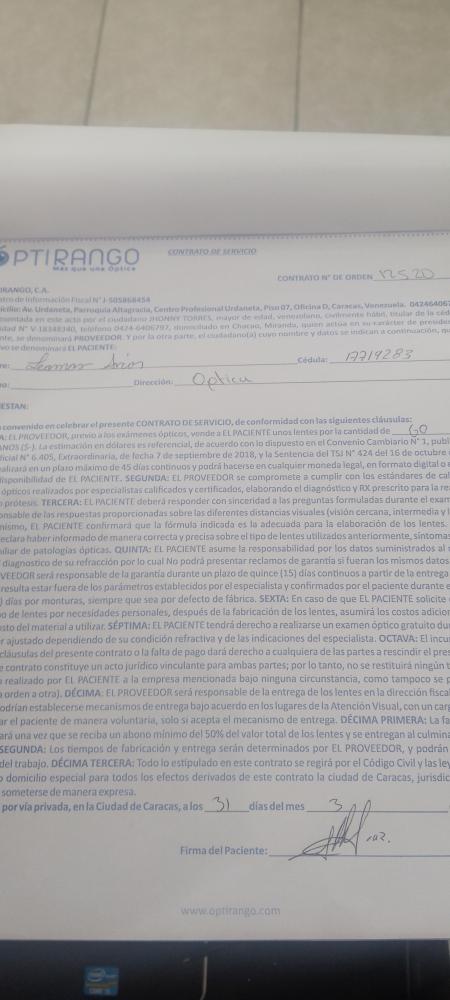 OPTIRANGO
Más que una Óptica
CONTRATO DE SERVICIO
CONTRATO N° DE ORDEN 12520
IRANGO, C.A.
tro de Información Fiscal N° J-505868454
icilio: Av. Urdaneta, Parroquia Altagracia, Centro Profesional Urdaneta, Piso 07, Oficina D, Caracas, Venezuela. 042464067
esentada en este acto por el ciudadano JHONNY TORRES, mayor de edad, venezolano, civilmente hábil, titular de la céd
idad N° V-18348340, teléfono 0424-6406797, domiciliado en Chacao, Miranda, quien actúa en su carácter de preside
nte, se denominará PROVEEDOR. Y por la parte, el ciudadano(a) cuyo nombre y datos se indican a continuación, qu
vo se denominará EL PACIENTE:
re: Cédula: 17719283
no: Dirección: Optica
IESTAN:
convenido en celebrar el presente CONTRATO DE SERVICIO, de conformidad con las siguientes cláusulas:
A: EL PROVEEDOR, previo a los exámenes ópticos, vende a EL PACIENTE unos lentes por la cantidad de 60
ANOS ($-). La estimación en dólares es referencial, de acuerdo con lo dispuesto en el Convenio Cambiario N° 1, publ
ficial N° 6.405, Extraordinaria, de fecha 7 de septiembre de 2018, y la Sentencia del TSJ N° 424 del 16 de octubre
alizará en un plazo máximo de 45 días continuos y podrá hacerse en cualquier moneda legal, en formato digital o e
disponibilidad de EL PACIENTE. SEGUNDA: EL PROVEEDOR se compromete a cumplir con los estándares de cal
ópticos realizados por especialistas calificados y certificados, elaborando el diagnóstico y RX prescrito para la re
o prótesis. TERCERA: EL PACIENTE deberá responder con sinceridad a las preguntas formuladas durante el exam
onsable de las respuestas proporcionadas sobre las diferentes distancias visuales (visión cercana, intermedia y l
mismo, EL PACIENTE confirmará que la fórmula indicada es la adecuada para la elaboración de los lentes.
eclara haber informado de manera correcta y precisa sobre el tipo de lentes utilizados anteriormente, síntomas
iliar de patologías ópticas. QUINTA: EL PACIENTE asume la responsabilidad por los datos suministrados al
diagnostico de su refracción por lo cual No podrá presentar reclamos de garantía si fueran los mismos datos
VEEDOR será responsable de la garantía durante un plazo de quince (15) días continuos a partir de la entrega
resulta estar fuera de los parámetros establecidos por el especialista y confirmados por el paciente durante e
) días por monturas, siempre que sea por defecto de fábrica. SEXTA: En caso de que EL PACIENTE solicite
o de lentes por necesidades personales, después de la fabricación de los lentes, asumirá los costos adicion
sto del material a utilizar. SÉPTIMA: EL PACIENTE tendrá derecho a realizarse un examen óptico gratuito dur
r ajustado dependiendo de su condición refractiva y de las indicaciones del especialista. OCTAVA: El incum
cláusulas del presente contrato o la falta de pago dará derecho a cualquiera de las partes a rescindir el pres
e contrato constituye un acto jurídico vinculante para ambas partes; por lo tanto, no se restituirá ningún t
realizado por EL PACIENTE a la empresa mencionada bajo ninguna circunstancia, como tampoco se p
a orden a otra). DÉCIMA: EL PROVEEDOR será responsable de la entrega de los lentes en la dirección fiscal
odrían establecerse mecanismos de entrega bajo acuerdo en los lugares de la Atención Visual, con un carg
ar el paciente de manera voluntaria, solo si acepta el mecanismo de entrega. DÉCIMA PRIMERA: La fa
ará una vez que se reciba un abono mínimo del 50% del valor total de los lentes y se entregan al culmina
SEGUNDA: Los tiempos de fabricación y entrega serán determinados por EL PROVEEDOR, y podrán
del trabajo. DÉCIMA TERCERA: Todo lo estipulado en este contrato se regirá por el Código Civil y las ley
o domicilio especial para todos los efectos derivados de este contrato la ciudad de Caracas, jurisdic
someterse de manera expresa.
por vía privada, en la Ciudad de Caracas, a los 31 días del mes 3
Firma del Paciente:
www.optirango.com